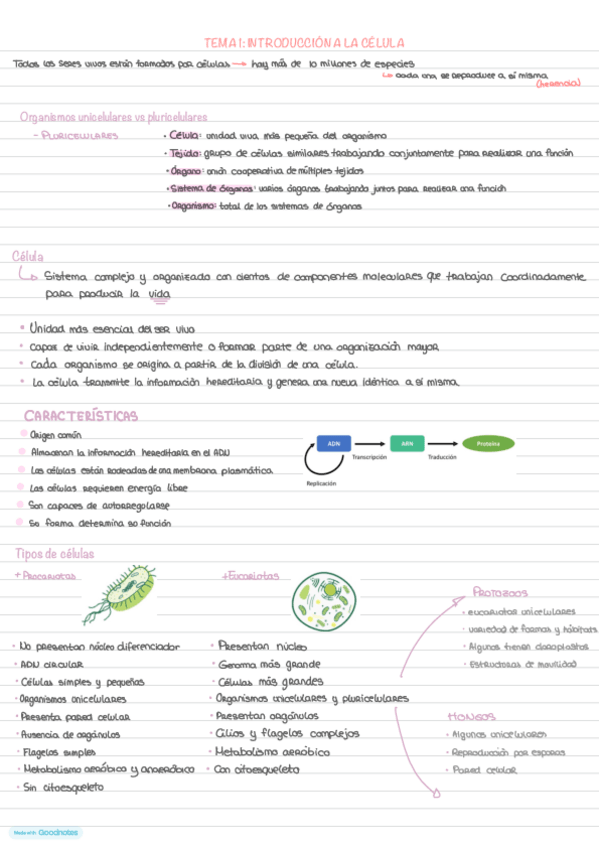 TEMA 1: INTRODUCCIÓN A LA CÉLULA
Todos los seres vivos están formados por células → hay más de 10 millones de especies
↳ cada una se reproduce a sí misma
(herencia)
Organismos unicelulares vs pluricelulares
- PLURICELULARES
• Célula: unidad viva más pequeña del organismo
• Tejido: grupo de células similares trabajando conjuntamente para realizar una función
• Órgano: unión cooperativa de múltiples tejidos
• Sistema de órganos: varios órganos trabajando juntos para realizar una función
• Organismo: total de los sistemas de órganos
Célula
↳ Sistema complejo y organizado con cientos de componentes moleculares que trabajan coordinadamente
para producir la vida
• Unidad más esencial del ser vivo
• Capaz de vivir independientemente o formar parte de una organización mayor
• Cada organismo se origina a partir de la división de una célula.
• La célula transmite la información hereditaria y genera una nueva idéntica a sí misma
CARACTERÍSTICAS
Origen común
Almacenan la información hereditaria en el ADN
Las células están rodeadas de una membrana plasmática
Las células requieren energía libre
Son capaces de autorregularse
Su forma determina su función
ADN
ARN
Proteína
Transcripción
Traducción
Replicación
Tipos de células
+ PROCARIOTAS
• No presentan núcleo diferenciador
• ADN CIRCULAR
• Células simples y pequeñas
• Organismos unicelulares
• Presenta pared celular
• Ausencia de orgánulos
• Flagelos simples
• Metabolismo aeróbico y anaeróbico
• Sin citoesqueleto
+ EUCARIOTAS
• Presentan núcleo
• Genoma más grande
• Células más grandes
• Organismos unicelulares y pluricelulares
• Presentan orgánulos
• Cilios y flagelos complejos
• Metabolismo aeróbico
• Con citoesqueleto
PROTOZOOS
• eucariotas unicelulares
• variedad de formas y hábitats
• Algunos tienen cloroplastos
• Estructuras de movilidad
HONGOS
• Algunos unicelulares
• Reproducción por esporas
• Pared celular
Made with Goodnotes